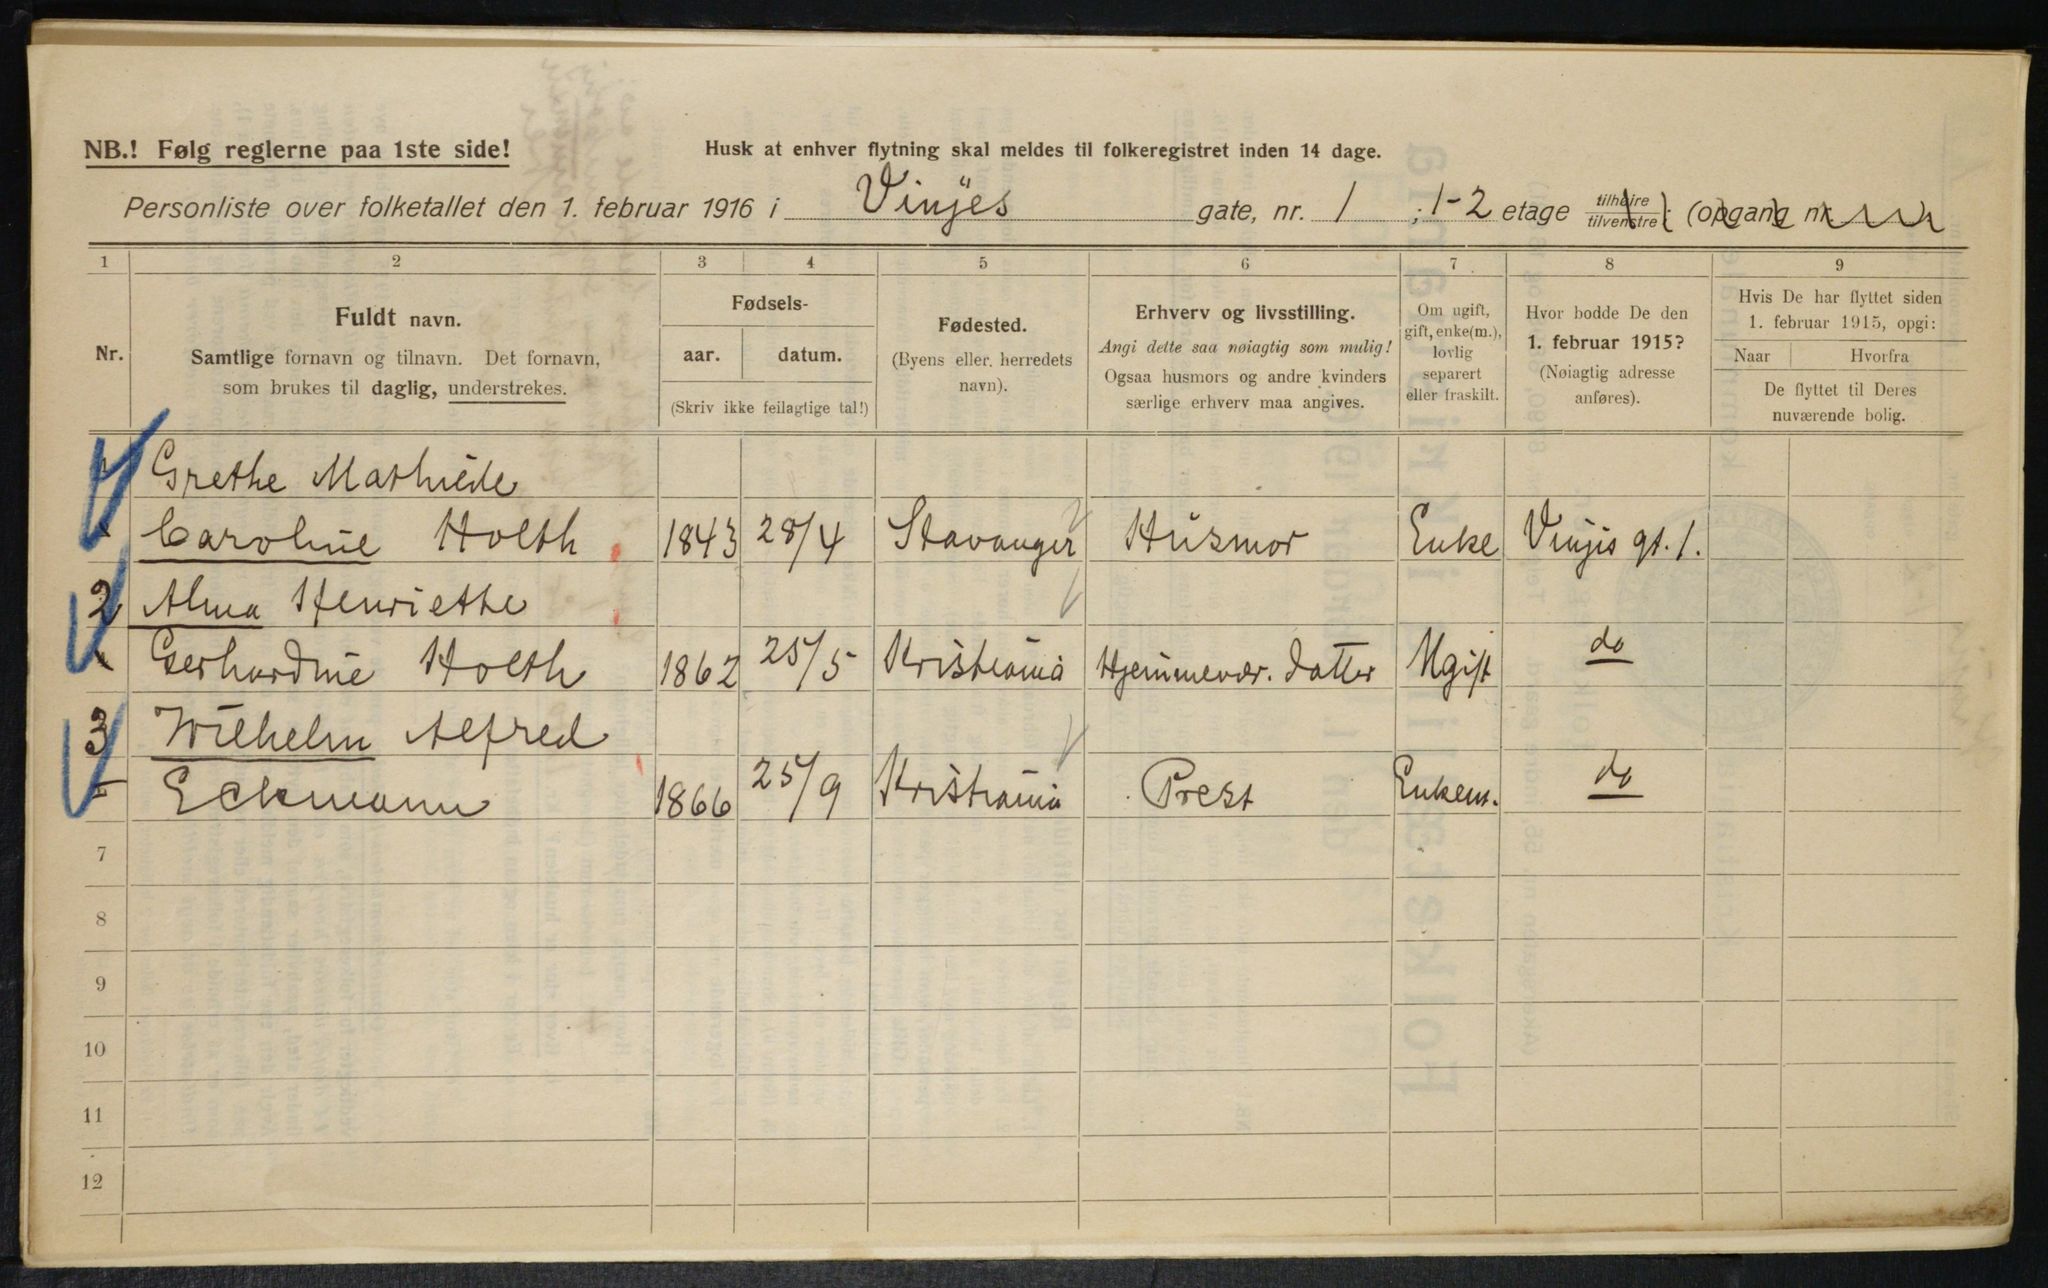 NB.! Følg reglerne paa 1ste side!
Husk at enhver flytning skal meldes til folkeregistret inden 14 dage.
Personliste over folketallet den 1. februar 1916 i Vinjes gate, nr. 1 ; 1-2 etage tilhøire / tilvenstre ; (opgang nr.
1 2 3 4 5 6 7 8 9
Nr.
Fuldt navn.
Samtlige fornavn og tilnavn. Det fornavn,
som brukes til daglig, understrekes.
Fødsels-
aar. datum.
(Skriv ikke feilagtige tal!)
Fødested.
(Byens eller herredets
navn).
Erhverv og livsstilling.
Angi dette saa nøiagtig som mulig!
Ogsaa husmors og andre kvinders
særlige erhverv maa angives.
Om ugift,
gift, enke(m.),
lovlig
separert
eller fraskilt.
Hvor bodde De den
1. februar 1915?
(Nøiagtig adresse
anføres).
Hvis De har flyttet siden
1. februar 1915, opgi:
Naar Hvorfra
De flyttet til Deres
nuværende bolig.
Grethe Mathilde
Caroline Holth 1843 28/4 Stavanger Husmor Enke Vinjes gt. 1.
2 Alma Henriethe
Gerhardine Holth 1862 25/5 Kristiania Hjemmevær. datter Ugift do
3 Wilhelm Alfred
Eckmann 1866 25/9 Kristiania Prest Enkem. do
7
8
9
10
11
12